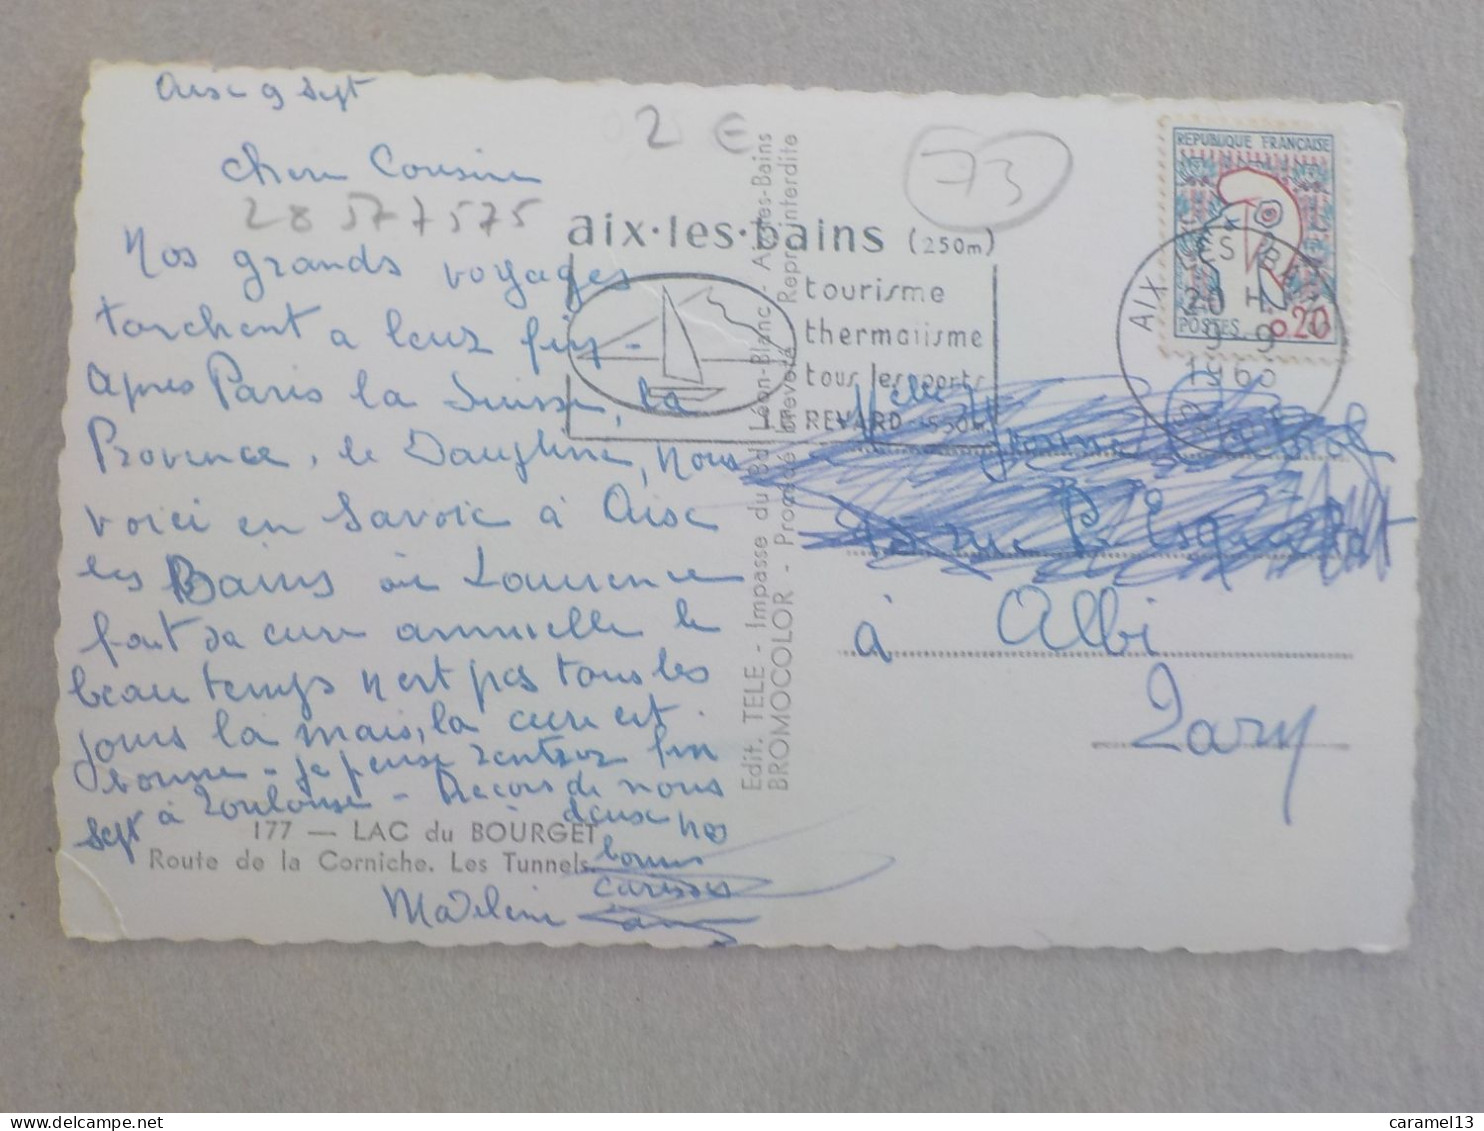 Aix 9 Sept
2 €
73
Chère Cousine
28577575
Nos grands voyages
touchent a leur fin -
Après Paris la Suisse, la
Provence, le Dauphiné, nous
voici en Savoie à Aix
les Bains où Laurence
fait sa cure annuelle le
beau temps n'est pas tous les
jours là mais, la cure est
bonne - je pense rentrer fin
Sept à Toulouse - Reçois de nous
deux nos
bonnes
caresses
Madeleine
177 — LAC du BOURGET
Route de la Corniche. Les Tunnels.
Edit. TELE - Impasse du Bd Léon-Blanc - Aix-les-Bains
BROMOCOLOR - Procédé Breveté Reproduction Interdite
aix·les·bains (250m)
tourisme
thermalisme
tous les sports
LE REVARD 1550m
REPUBLIQUE FRANÇAISE
POSTES 0,20
AIX LES BAINS
20 H
9-9
196
Melle
rue
à Albi
Tarn
caramel13